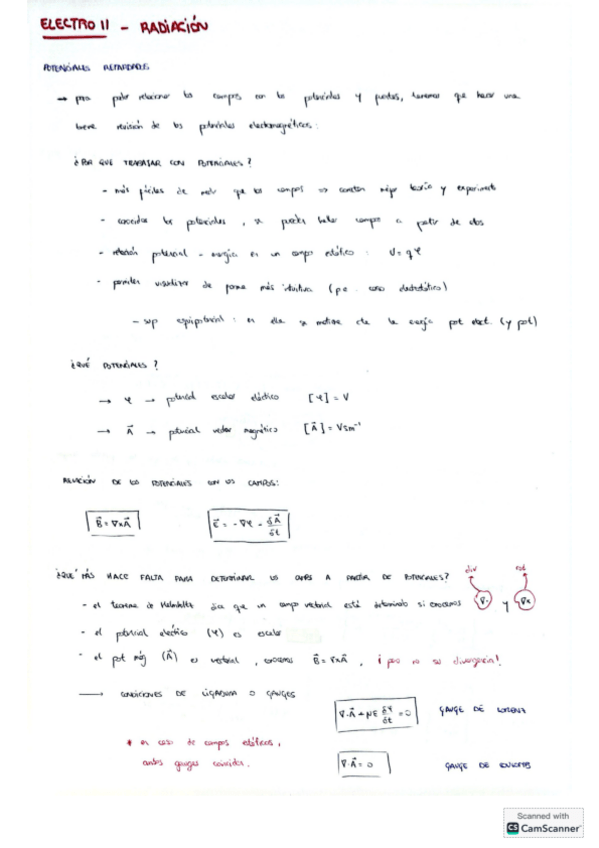 ELECTRO II - RADIACIÓN
POTENCIALES RETARDADOS
→ para poder relacionar los campos con los potenciales y fuentes, tenemos que hacer una
breve revisión de los potenciales electromagnéticos:
¿POR QUÉ TRABAJAR CON POTENCIALES?
- más fáciles de medir que los campos => conectan mejor teoría y experimento
- conocidos los potenciales, se pueden hallar campos a partir de ellos
- relación potencial - energía en un campo estático : U = qφ
- permiten visualizar de forma más intuitiva (p.e. caso electrostático)
- sup equipotencial : en ella se mantiene cte la energía pot elect. (y pot)
¿QUÉ POTENCIALES?
→ φ → potencial escalar eléctico [φ] = V
→ A⃗ → potencial vector magnético [A⃗] = Vsm⁻¹
RELACIÓN DE LOS POTENCIALES CON LOS CAMPOS:
B⃗ = ∇xA⃗ E⃗ = -∇φ - δA⃗/δt
div rot
¿QUÉ MÁS HACE FALTA PARA DETERMINAR LOS CAMPOS A PARTIR DE POTENCIALES?
- el teorema de Helmholtz dice que un campo vectorial está determinado si conocemos ∇· y ∇x
- el potencial eléctrico (φ) es escalar
- el pot mag (A⃗) es vectorial, conocemos B⃗ = ∇xA⃗, ¡pero no su divergencia!
→ CONDICIONES DE LIGADURA O GAUGES
∇·A⃗ + με δφ/δt = 0 GAUGE DE LORENTZ
* en caso de campos estáticos,
ambos gauges coinciden.
∇·A⃗ = 0 GAUGE DE COULOMB
Scanned with
CS CamScanner